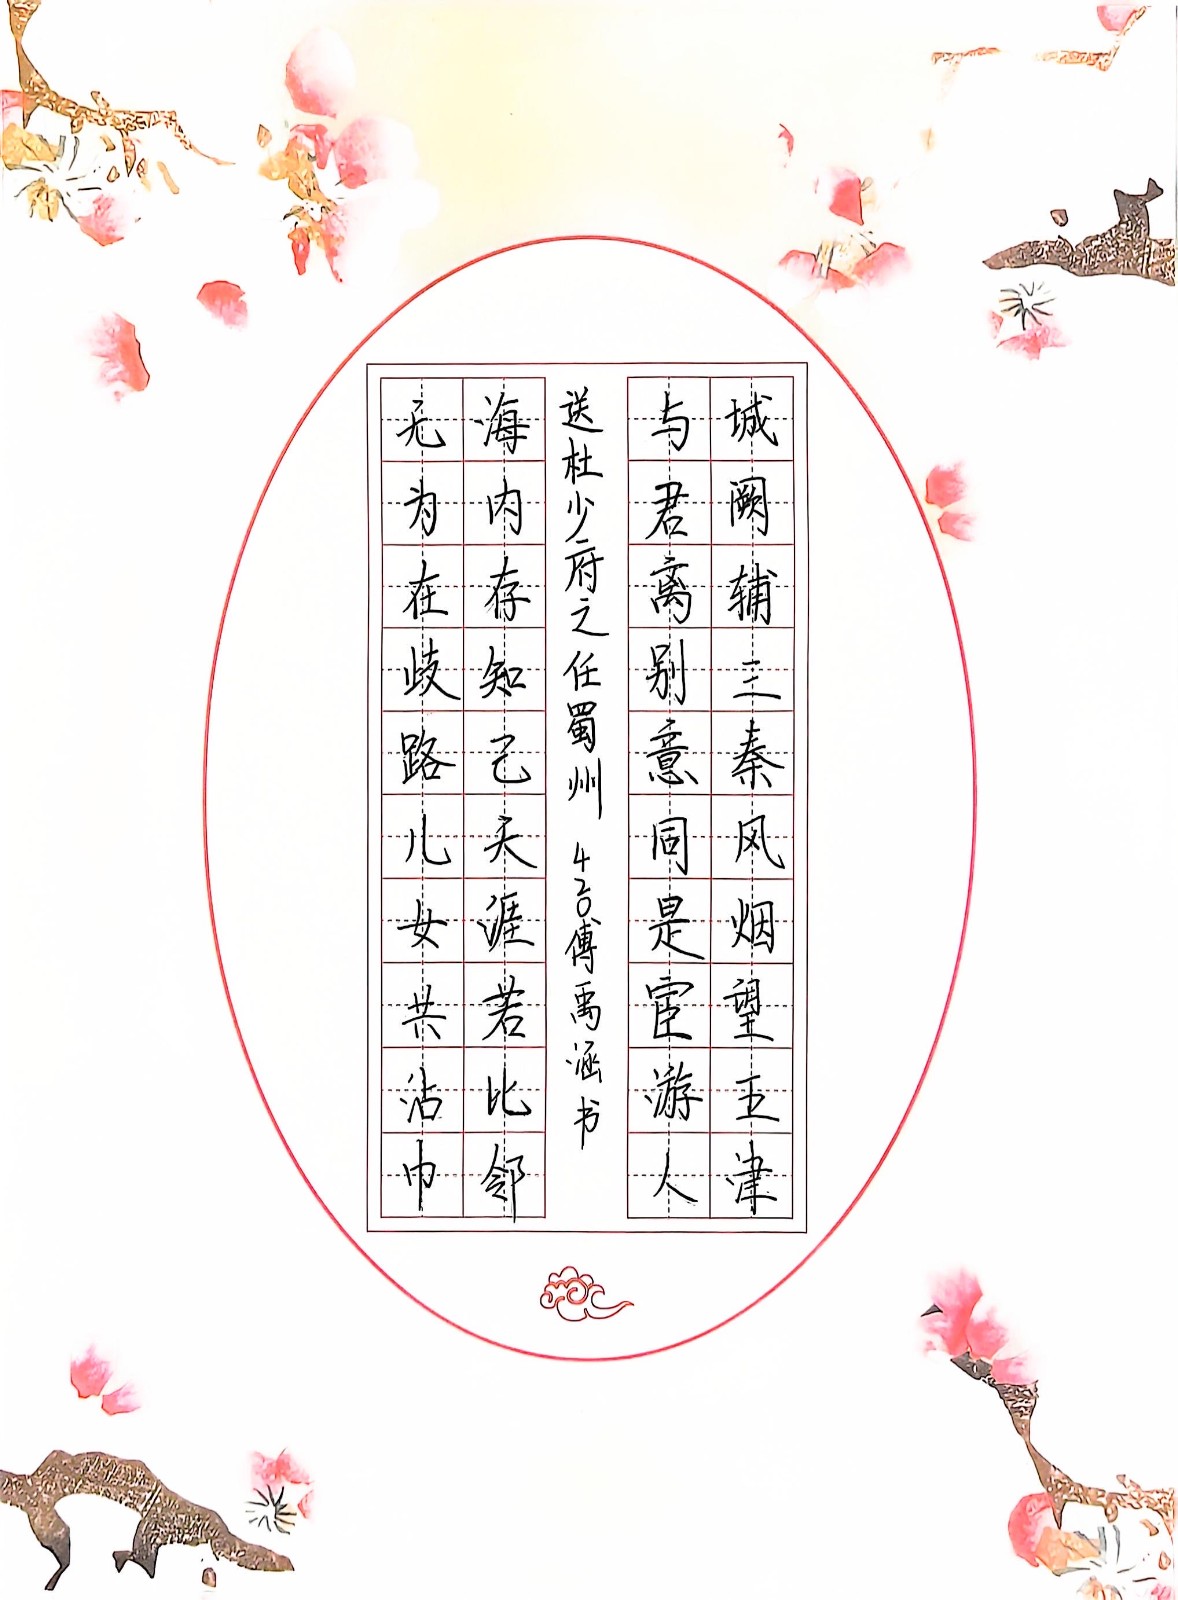 城阙辅三秦风烟望五津
与君离别意同是宦游人
送杜少府之任蜀州 420傅禹涵书
海内存知己天涯若比邻
无为在歧路儿女共沾巾